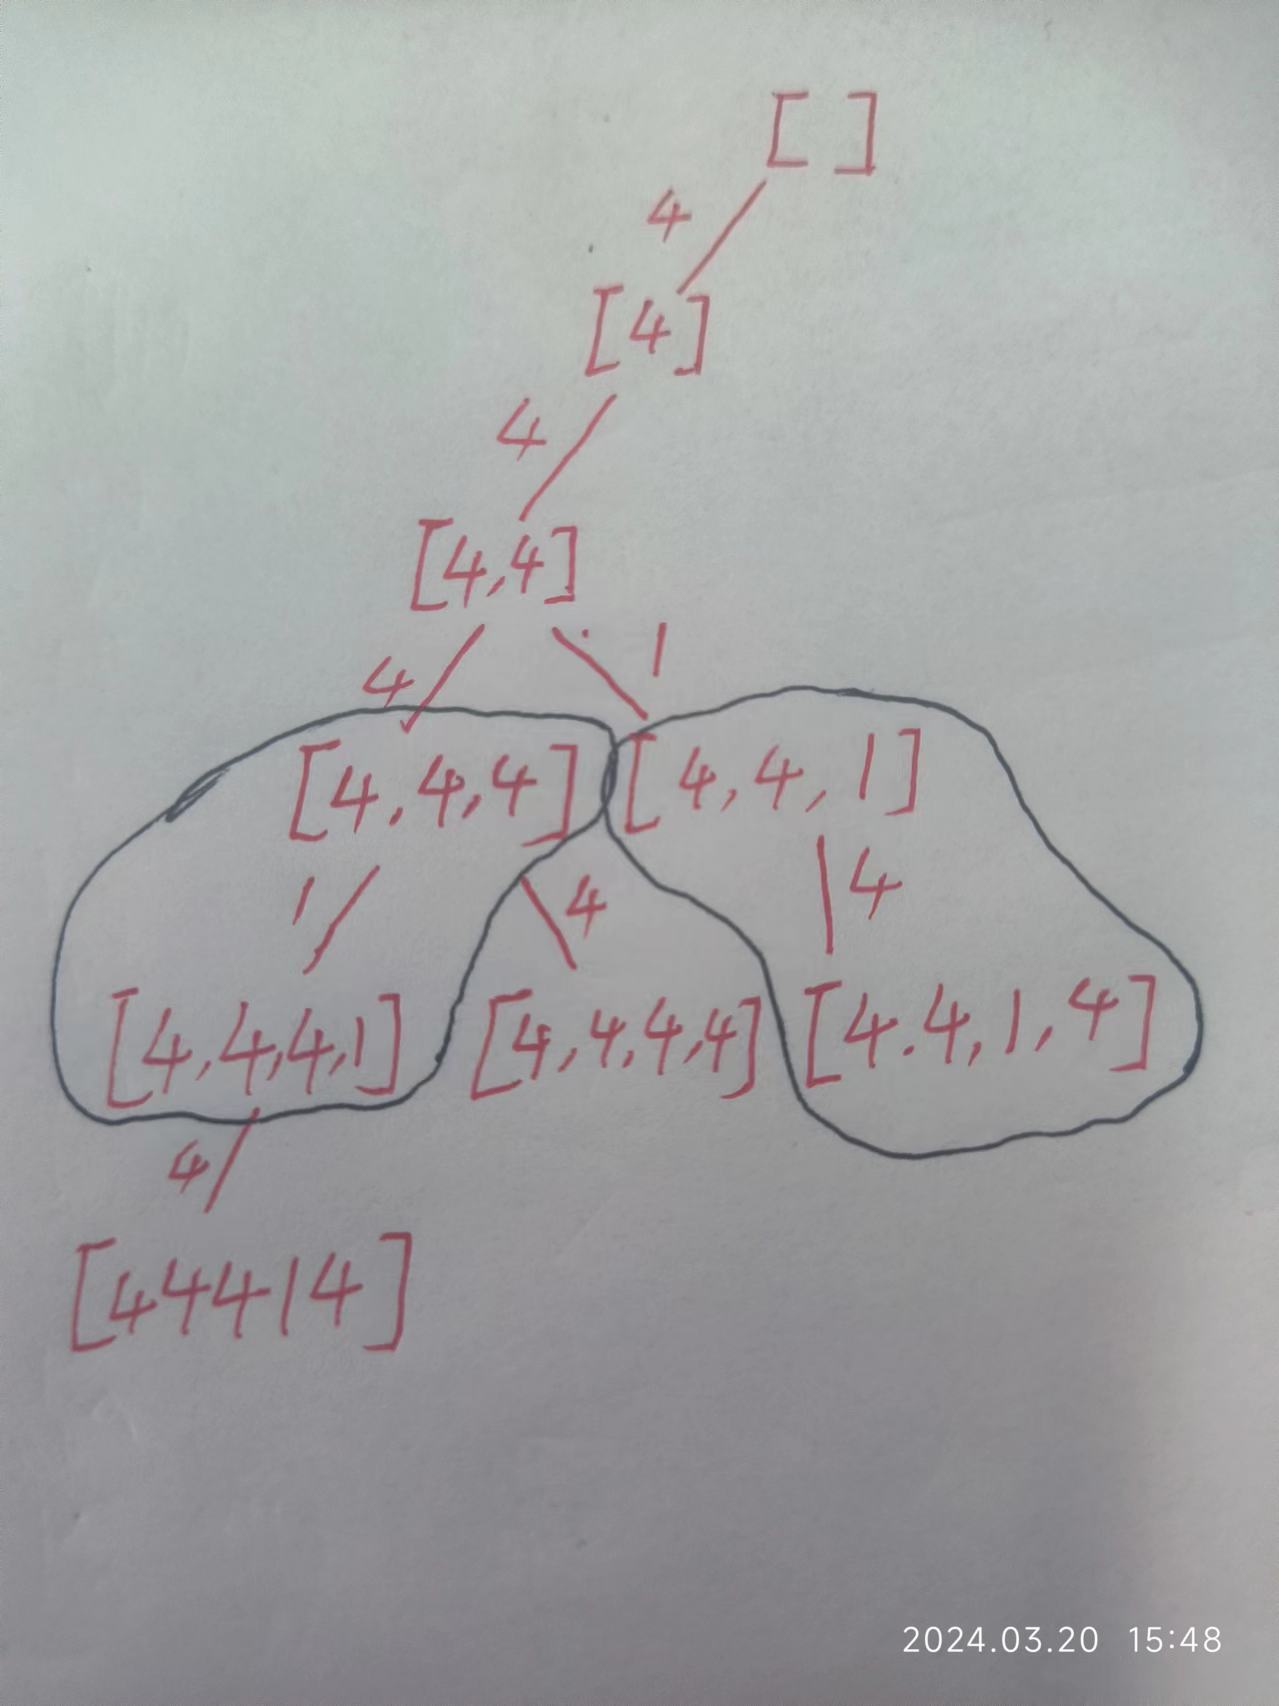 [ ]
4
[4]
4
[4,4]
4 1
[4.4,4] [4,4,1]
1 4 4
[4,4,4,1] [4,4,4,4] [4.4,1,4]
4
[44414]
2024.03.20 15:48